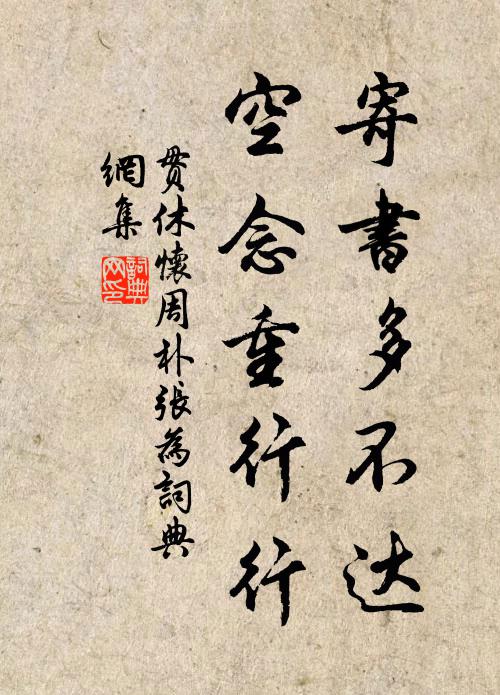 寄書多不达
空念重行行
貫休懷周朴張為詞典
網集
詞典
网印